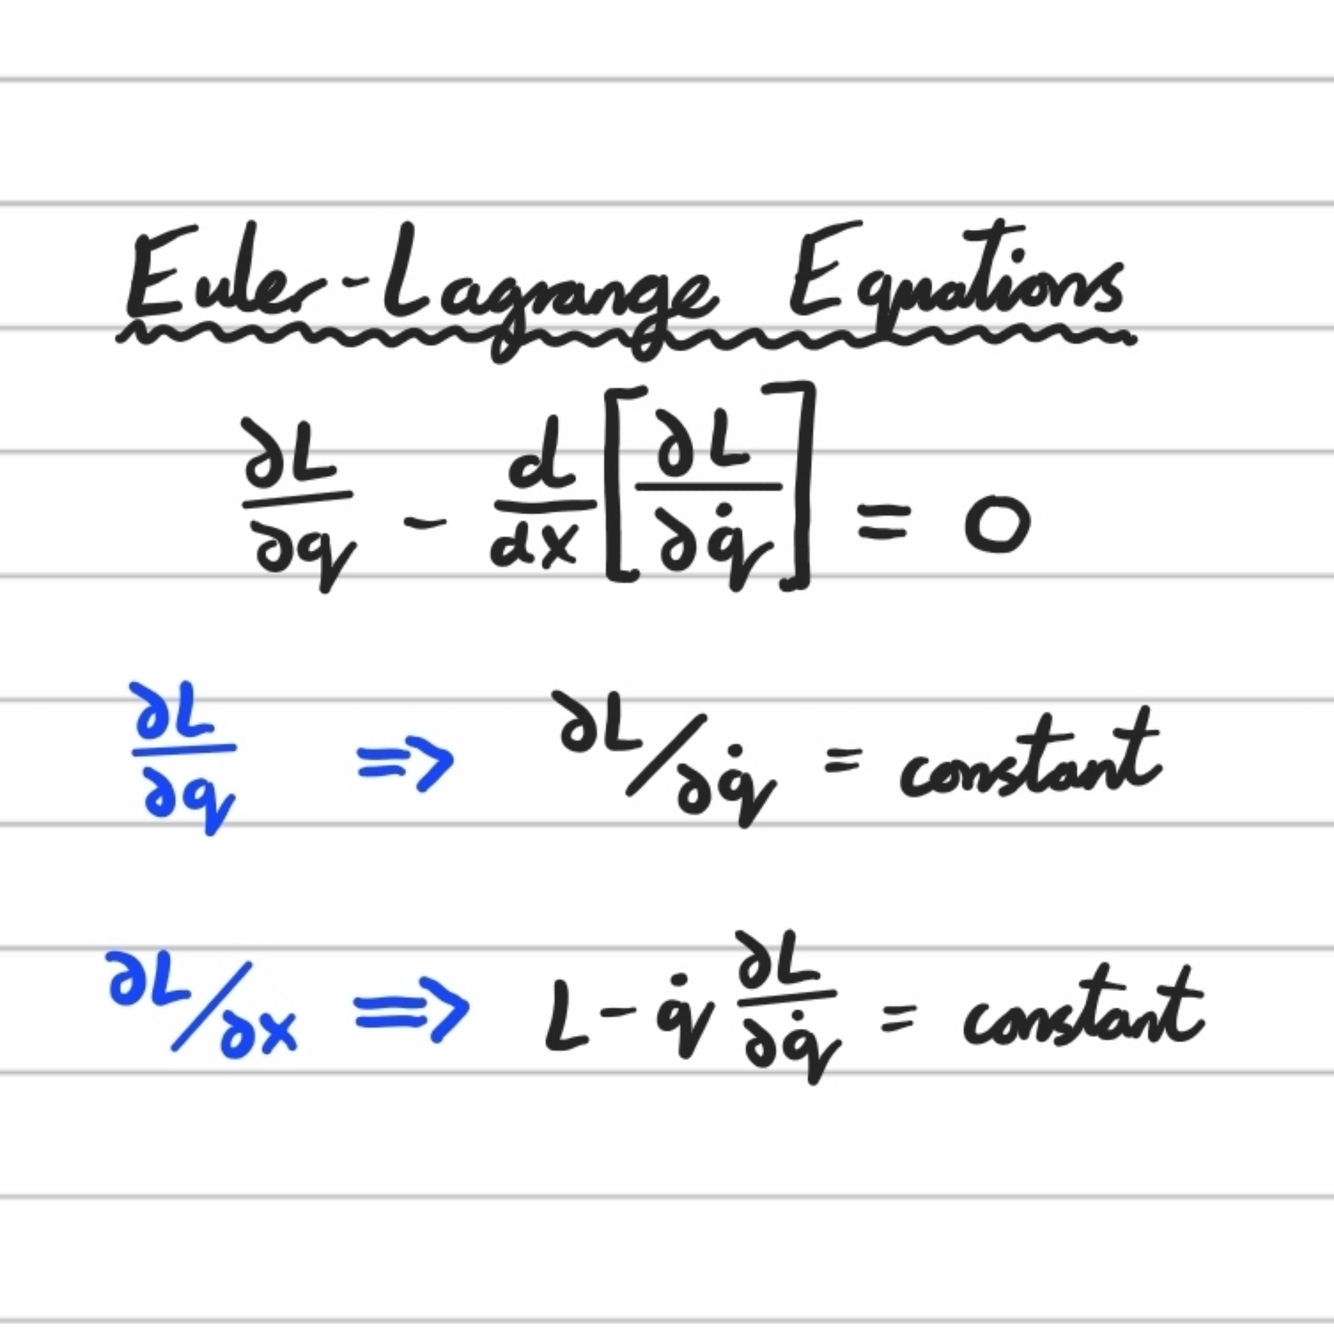 Euler-Lagrange Equations
∂L/∂q - d/dx [∂L/∂q̇] = 0
∂L/∂q ⇒ ∂L/∂q̇ = constant
∂L/∂x ⇒ L - q̇ ∂L/∂q̇ = constant